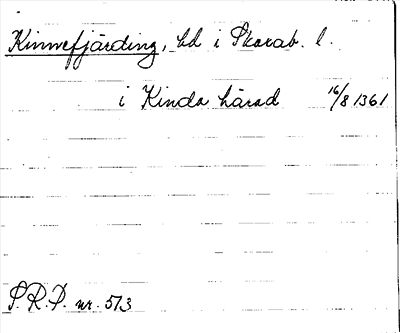 Kinnefjärding, hd i Skarab. l.
i Kinda härad 16/8 1361
S.R.P. nr. 513